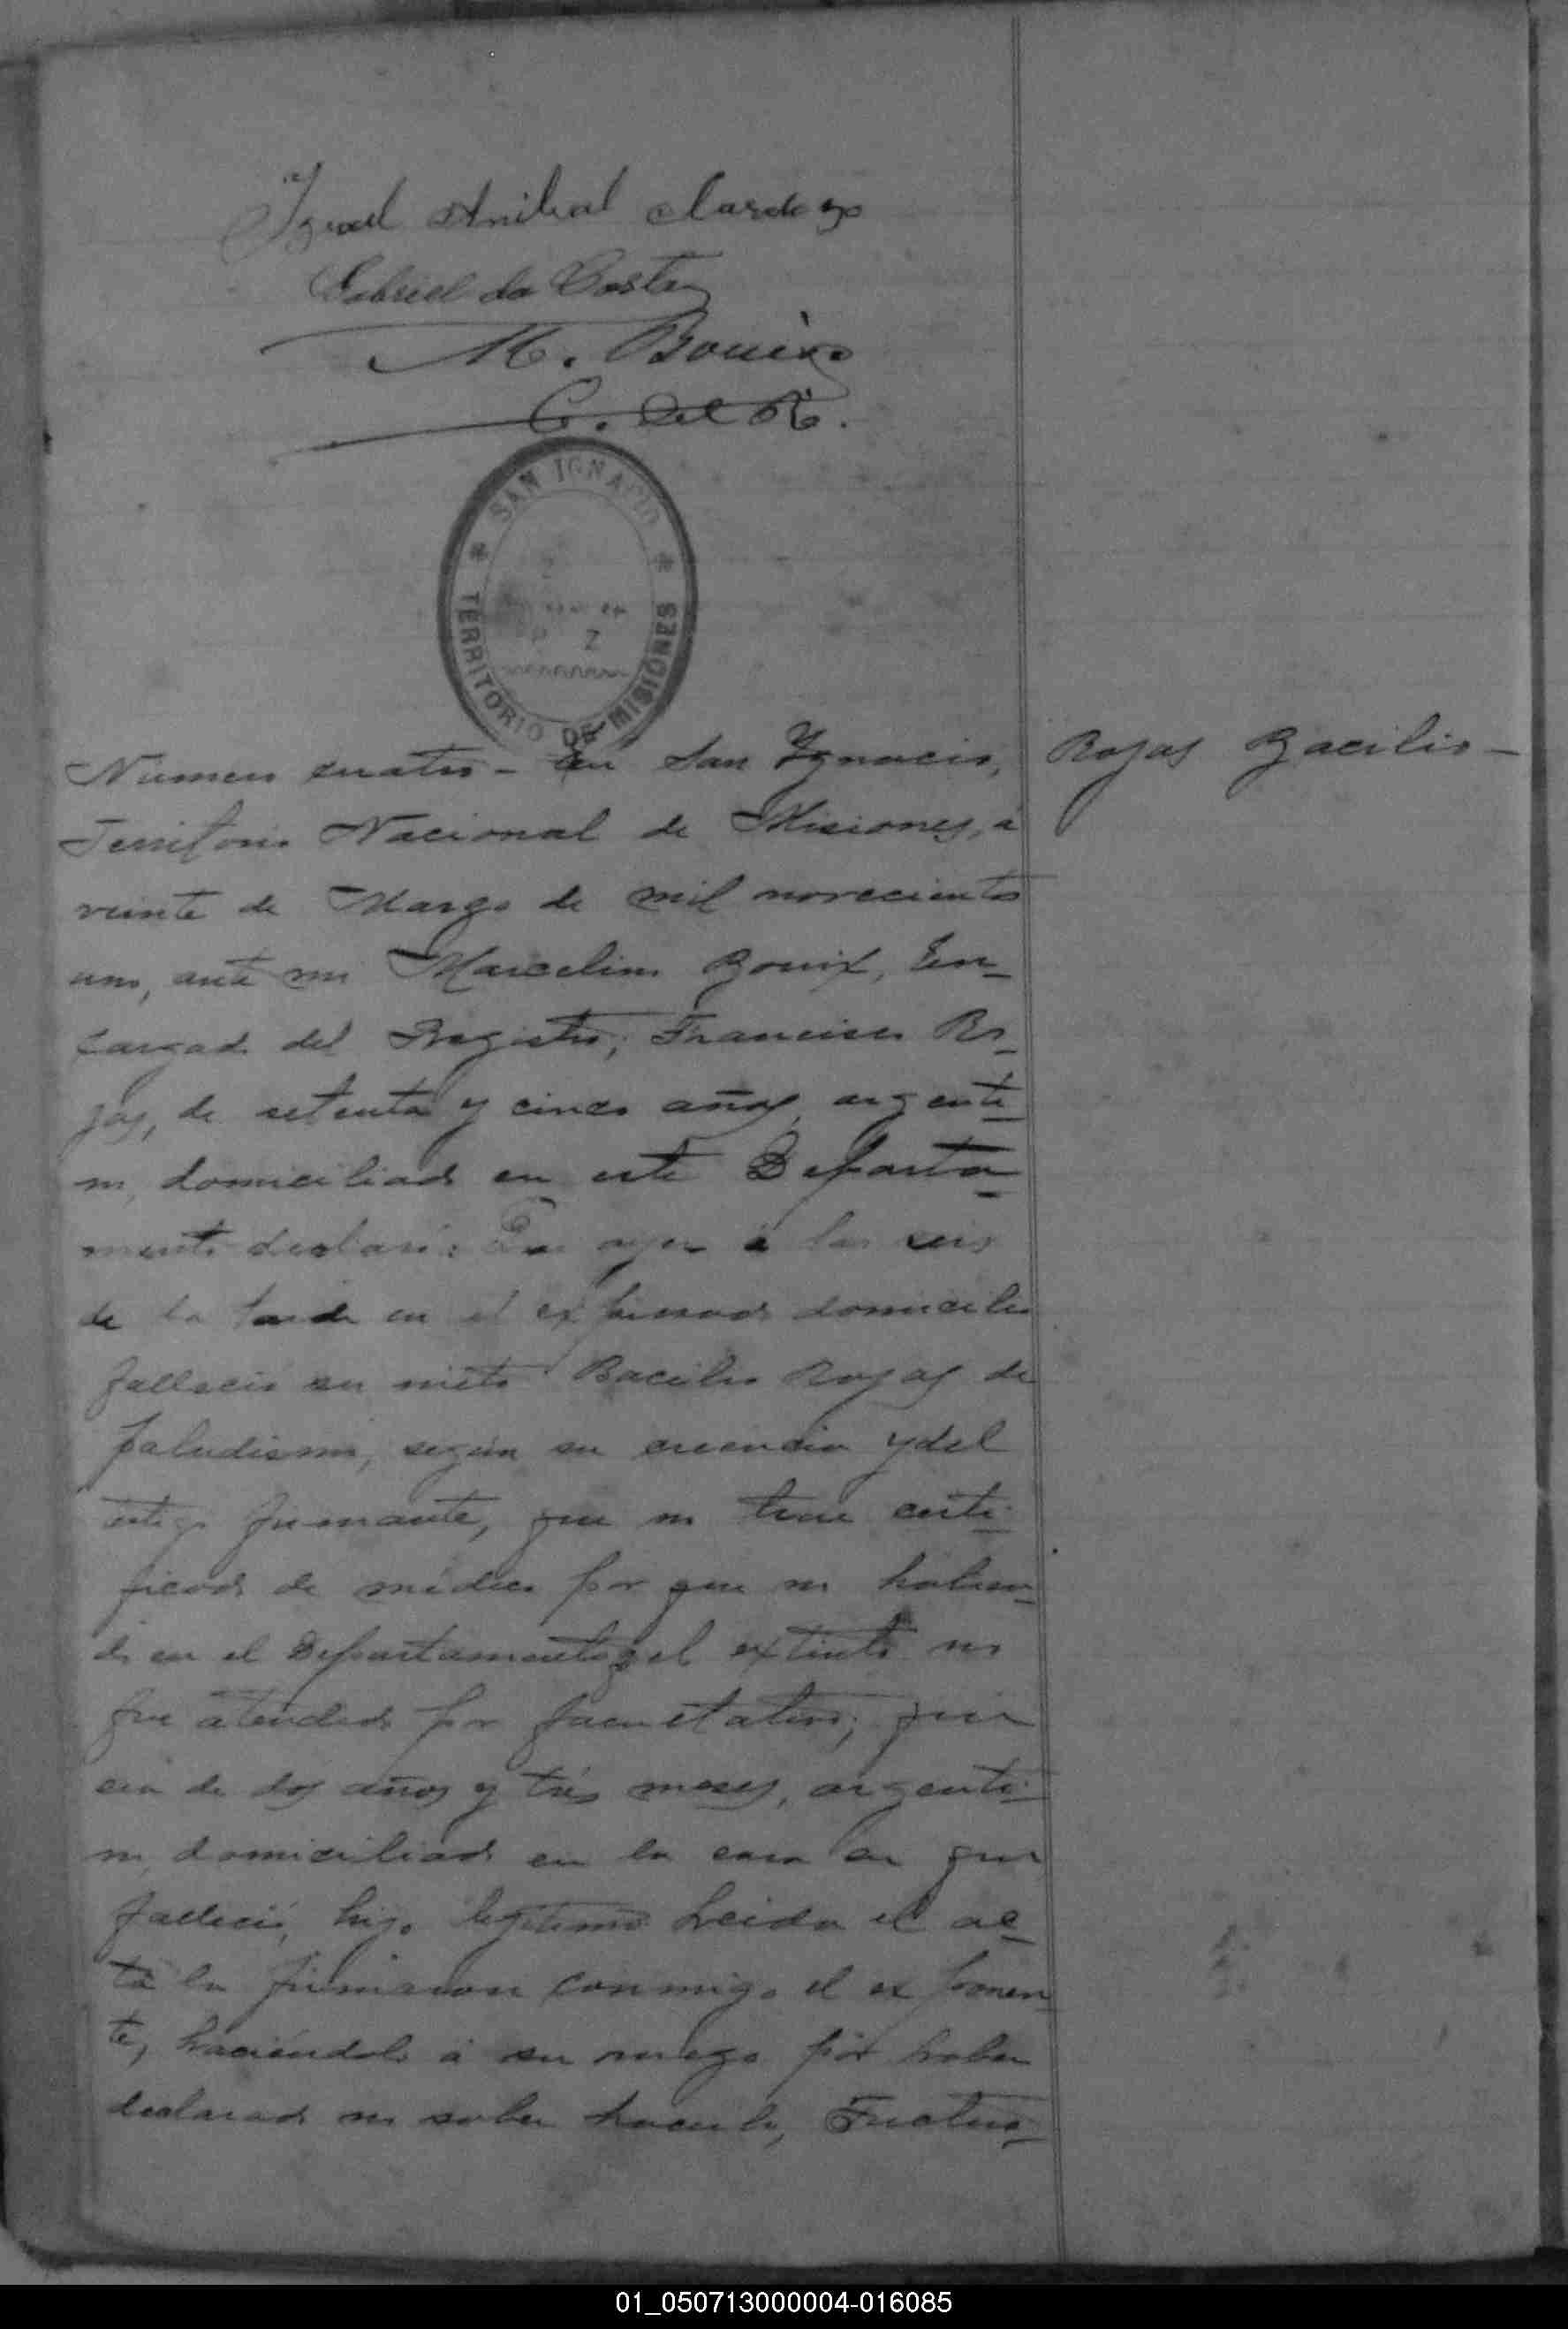 Anibal Cardozo
Gabriel da Costa
M. Bouix
E. del R.
SAN IGNACIO
TERRITORIO DE MISIONES
Numero cuatro - En San Ygnacio,
Rojas Bacilio -
Territorio Nacional de Misiones, á
veinte de Marzo de mil novecientos
uno, ante mi Marcelino Bouix, En-
cargado del Registro; Francisco Ro-
jas, de setenta y cinco años, argenti-
no, domiciliado en este Departa-
mento declaró: Que ayer á las seis
de la tarde en el expresado domicilio
falleció su nieto Bacilio Rojas de
paludismo, según su creencia y del
testigo firmante, que no tiene certi-
ficado de médico por que no habien-
do en el Departamento, el extinto no
fue atendido por facultativo; que
era de dos años y tres meses, argenti-
no, domiciliado en la casa en que
falleció, hijo legítimo Leida el ac-
ta la firmaron conmigo el exponen-
te, haciéndolo á su ruego por haber
declarado no saber hacerlo, Fructuo-
01_050713000004-016085